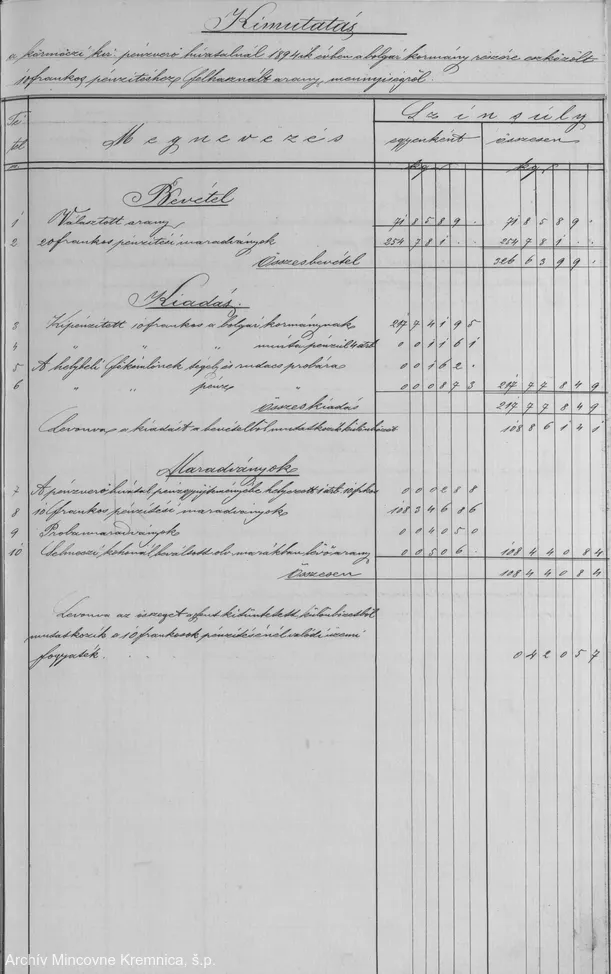 Kimutatás
a körmöczi kir. pénzverő hivatalnál 1894ik évben a bolgár kormány részére eszközölt
10 frankos pénzitéshez felhasznált arany mennyiségről.
Tétel Megnevezés Szinsúly
egyenként összesen
kg kg
Bevétel
1 Választott arany 71 8 5 8 9 . 71 8 5 8 9 .
2 20 frankos pénzitési maradványok 254 7 8 1 . . 254 7 8 1 . .
Összesbevétel 326 6 3 9 9 .
Kiadás.
3 Kipénzitett 10 frankos a bolgár kormánynak 217 7 4 1 9 5
4 " " " minta pénzül 4 drb 0 0 1 1 6 1
5 A helybeli főkémlőnek tégely és rudacs próbára 0 0 1 6 2 .
6 " " pénz " 0 0 0 8 7 3 217 7 7 8 4 9
Összeskiadás 217 7 7 8 4 9
Levonva a kiadást a bevételből mutatkozik különbözet 108 8 6 1 4 1
Maradványok
7 A pénzverő hivatal pénzgyüjteményébe helyezett 1 drb 10 frkos 0 0 0 2 8 8
8 10 frankos pénzitési maradványok 108 3 4 6 0 6
9 Próbamaradványok 0 0 4 0 5 0
10 Selmeczi kohónál beváltott olv. marákban lévő arany 0 0 5 0 6 . 108 4 4 0 8 4
Összesen 108 4 4 0 8 4
Levonva az összeget a fent kitüntetett különbözetből
mutatkozik a 10 frankosok pénzitésénél valódi üzemi
fogyaték. . . . 0 4 2 0 5 7
Archív Mincovne Kremnica, š.p.